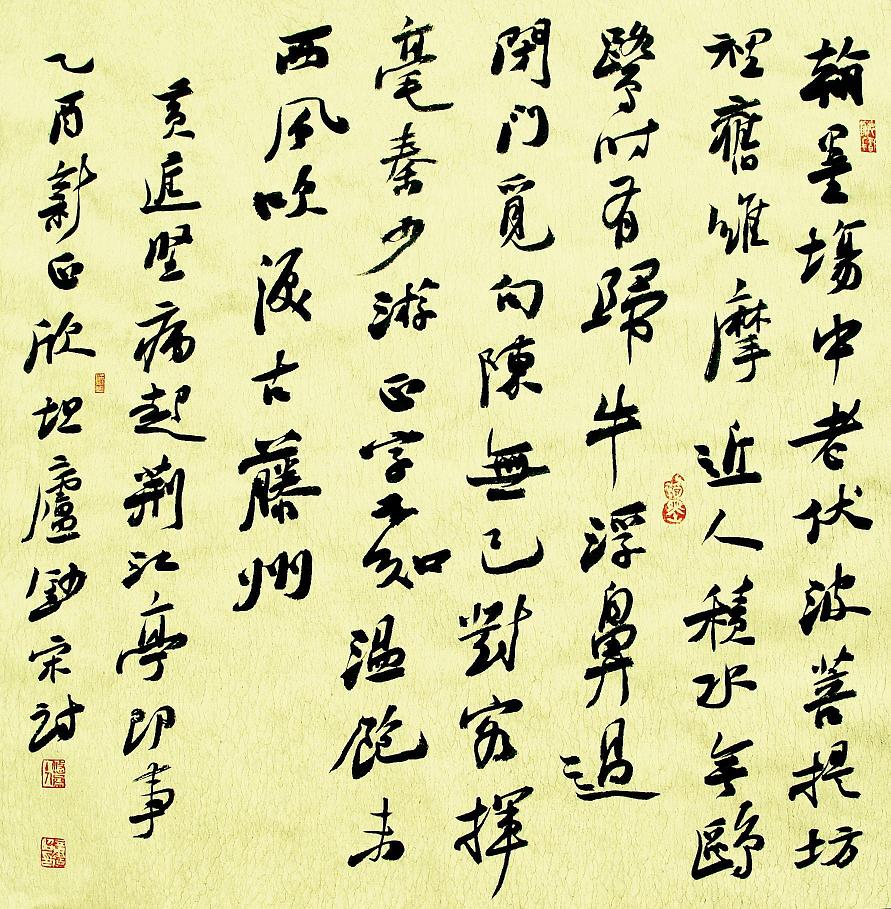 翰墨場中老伏波菩提坊
裡舊維摩近人積水無鷗
鷺時有歸牛浮鼻過
閉門覓句陳無己對客揮
毫秦少游正字不知溫飽未
西風吹淚古藤州
黃庭堅病起荊江亭即事
乙酉新正欣坦廬宋詩